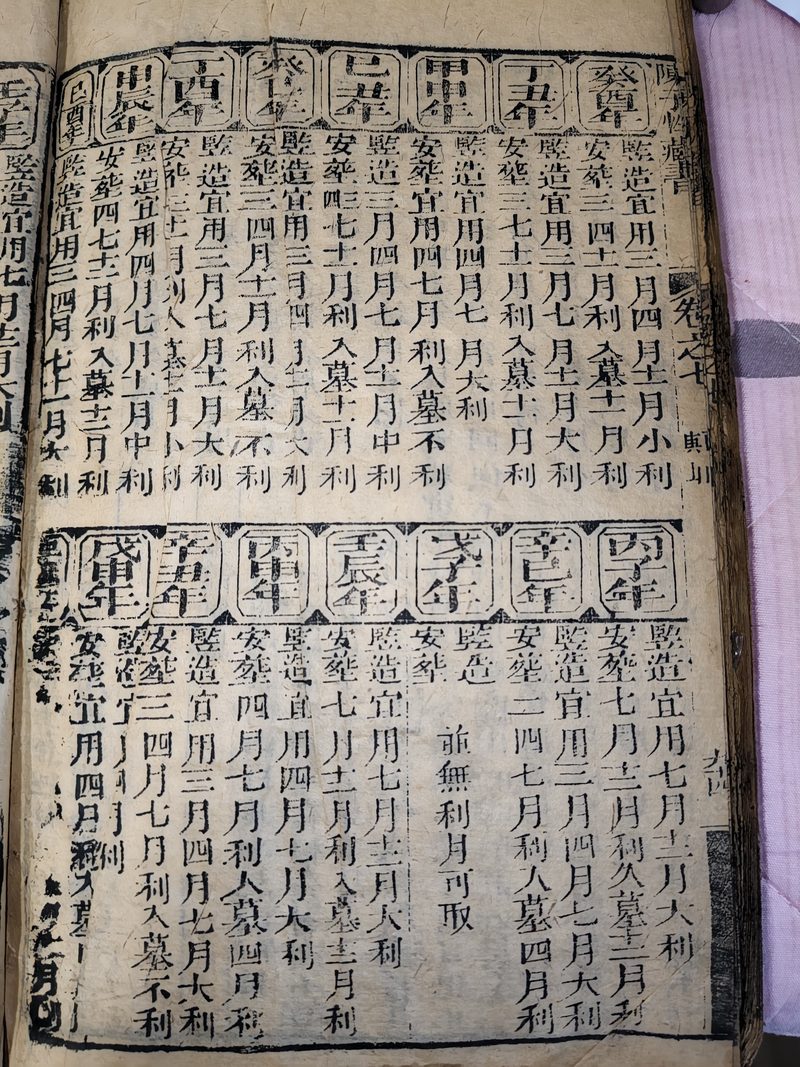 陳子性藏書
卷之七
九四
癸酉年
竪造宜用三月四月十二月小利
安葬三四十一月利入墓十二月利
丁丑年
竪造宜用三月七月十二月大利
安葬三七十一月利入墓十二月利
甲申年
竪造宜用四月七月大利
安葬宜用四七月利入墓不利
己丑年
竪造三月四月七月十二月中利
安葬四七十二月利入墓十二月利
癸巳年
竪造宜用三月四月十二月大利
安葬三四月十二月利入墓不利
丁酉年
竪造宜用三月七月十二月大利
甲辰年
竪造宜用四月七月十二月中利
安葬四七十二月利入墓十二月利
己酉年
竪造宜用三四月七十一月大利
丙子年
竪造宜用七月十二月大利
安葬七月十二月利入墓十二月利
辛巳年
竪造宜用三月四月七月大利
安葬二四七月利入墓四月利
戊子年
竪造
安葬
並無利月可取
壬辰年
竪造宜用七月十二月大利
安葬七月十二月利入墓十二月利
丙申年
竪造宜用四月七月大利
安葬四月七月利入墓四月利
辛丑年
竪造宜用三月四月七月大利
安葬三四月七月利入墓不利
戊申年
安葬宜用四月利入墓
壬子年
竪造宜用七月十二月大利